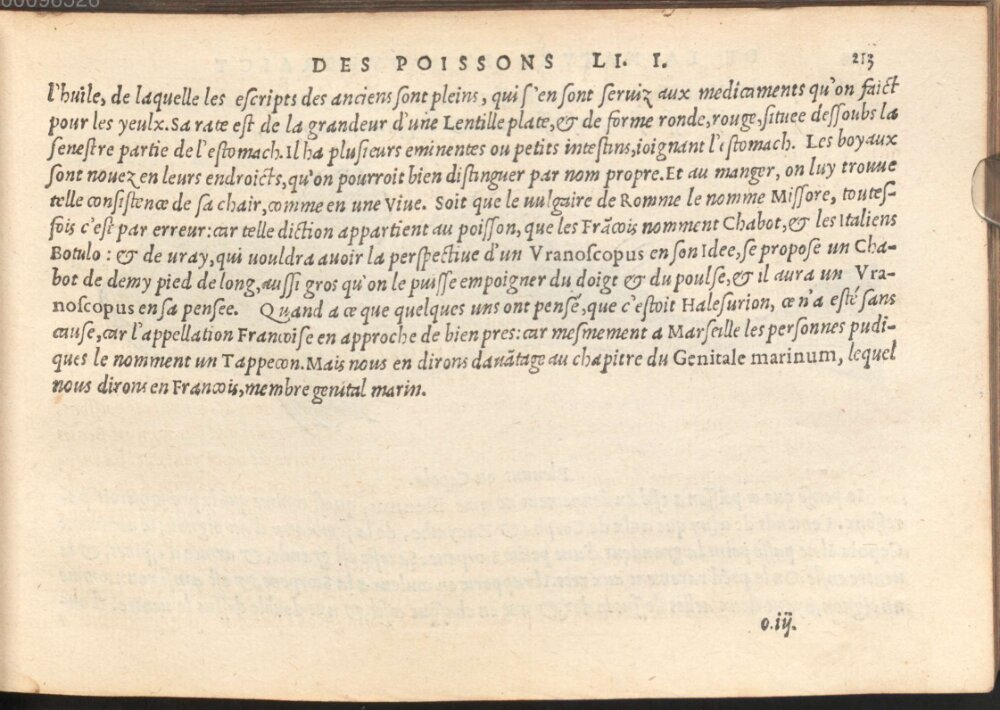 DES POISSONS LI. I. 213
l'huile, de laquelle les escripts des anciens sont pleins, qui s'en sont seruiz aux medicaments qu'on faict
pour les yeulx. Sa rate est de la grandeur d'une Lentille plate, & de forme ronde, rouge, situee dessoubs la
senestre partie de l'estomach. Il ha plusieurs eminentes ou petits intestins, ioignant l'estomach. Les boyaux
sont nouez en leurs endroicts, qu'on pourroit bien distinguer par nom propre. Et au manger, on luy trouue
telle consistence de sa chair, comme en une Viue. Soit que le uulgaire de Romme le nomme Missore, toutes-
fois c'est par erreur: car telle diction appartient au poisson, que les Frãcois nomment Chabot, & les Italiens
Botulo: & de uray, qui uouldra auoir la perspectiue d'un Vranoscopus en son Idee, se propose un Cha-
bot de demy pied de long, aussi gros qu'on le puisse empoigner du doigt & du poulse, & il aura un Vra-
noscopus en sa pensee. Quand a ce que quelques uns ont pensé, que c'estoit Halesurion, ce n'a esté sans
cause, car l'appellation Francoise en approche de bien pres: car mesmement a Marseille les personnes pudi-
ques le nomment un Tappecon. Mais nous en dirons dauãtage au chapitre du Genitale marinum, lequel
nous dirons en Francois, membre genital marin.
o.iij.